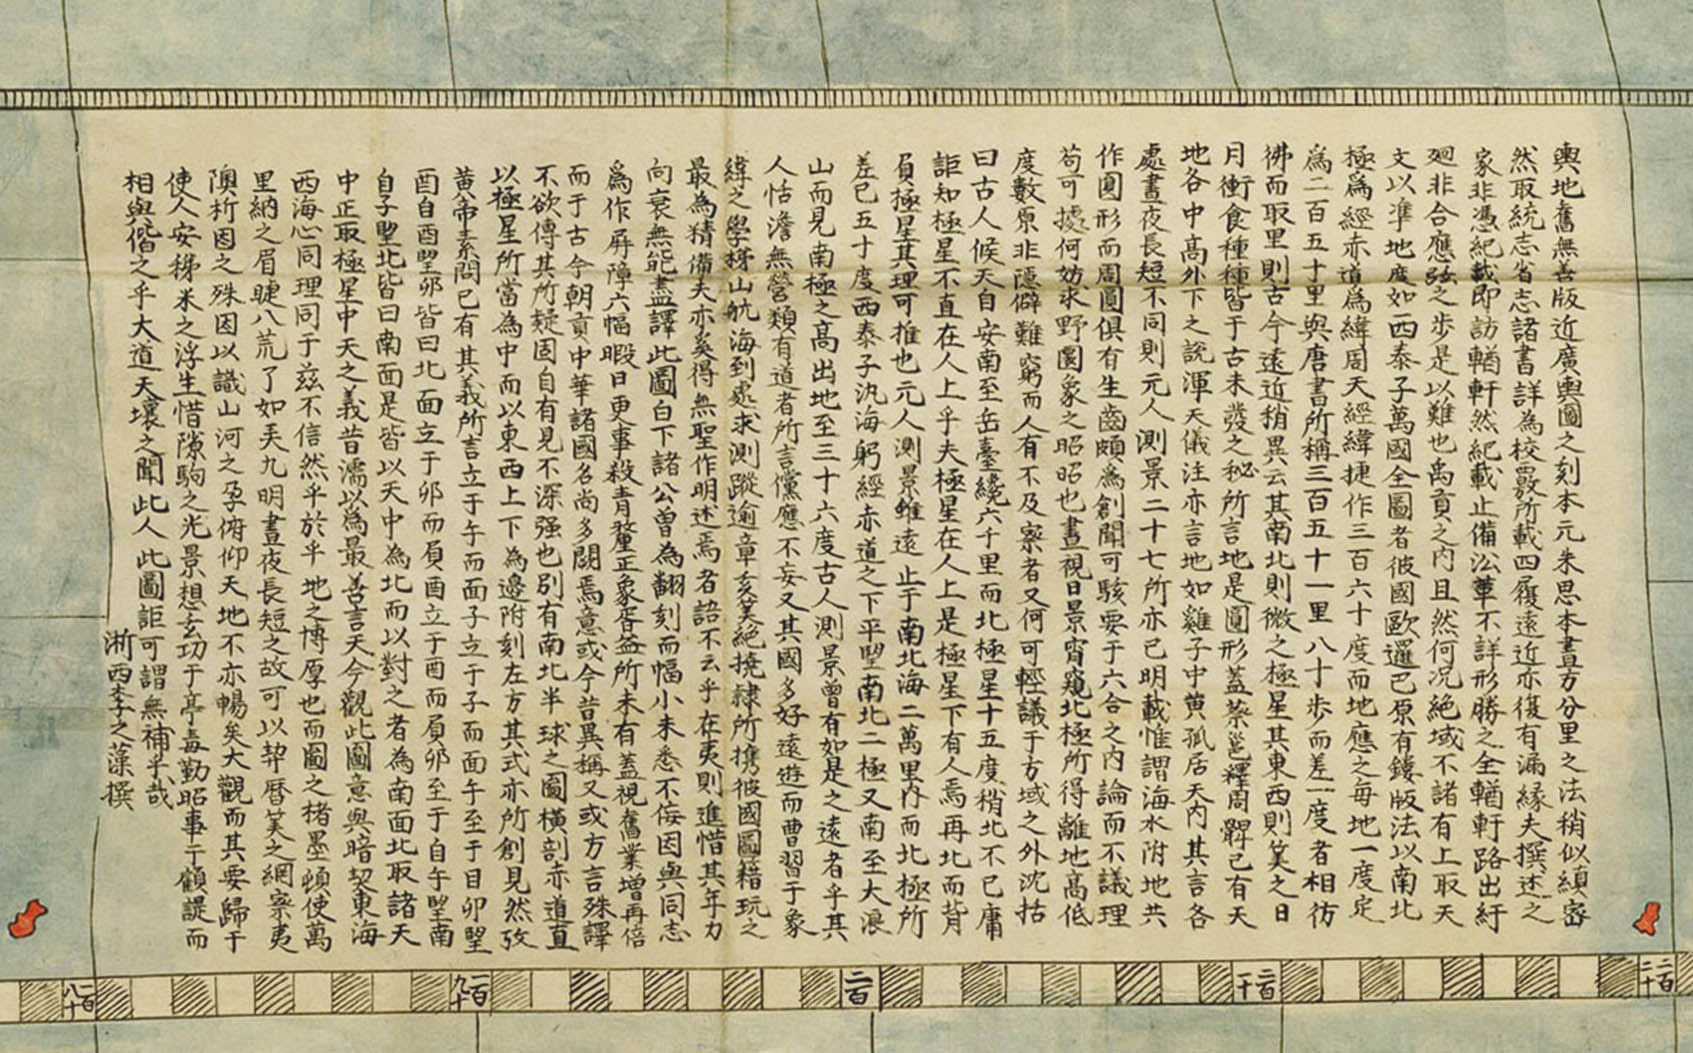 輿地舊無善版近廣輿圖之刻本元朱思本畫方分里之法稍似縝密
然取統志省志諸書詳為校覈所載四履遠近亦復有漏緣夫撰述之
家非憑紀載即訪輶軒然紀載止備沿革不詳形勝之全輶軒路出紆
廻非合應弦之步是以難也禹貢之內且然何况絕域不諸有上取天
文以凖地度如西泰子萬國全圖者彼國歐邏巴原有鏤版法以南北
極為經赤道為緯周天經緯捷作三百六十度而地應之每地一度定
為二百五十里與唐書所稱三百五十一里八十步而差一度者相彷
彿而取里則古今遠近稍異云其南北則徵之極星其東西則筭之日
月衝食種種皆于古未發之秘所言地是圓形蓋蔡邕釋周髀已有天
地各中高外下之說渾天儀注亦言地如雞子中黃孤居天內其言各
處晝夜長短不同則元人測景二十七所亦已明載惟謂海水附地共
作圓形而周圓俱有生齒頗為創聞可駭要于六合之內論而不議理
苟可據何妨求野圜象之昭昭也晝視日景宵窺北極所得離地高低
度數原非隱僻難窮而人有不及察者又何可輕議于方域之外沈括
曰古人候天自安南至岳臺纔六千里而北極星十五度稍北不已庸
詎知極星不直在人上乎夫極星在人上是極星下有人焉再北而背
負極星其理可推也元人測景雖遠止于南北海二萬里內而北極所
差已五十度西泰子汎海躬經赤道之下平望南北二極又南至大浪
山而見南極之高出地至三十六度古人測景曾有如是之遠者乎其
人恬澹無營類有道者所言儻應不妄又其國多好遠遊而曹習于象
緯之學梯山航海到處求測蹤逾章亥筭絕撓隸所攜彼國圖籍玩之
最為精備夫亦奚得無聖作明述焉者語不云乎在夷則進惜其年力
向衰無能盡譯此圖白下諸公曾為翻刻而幅小未悉不佞因與同志
為作屏障六幅暇日更事殺青釐正象胥益所未有蓋視舊業增再倍
而于古今朝貢中華諸國名尚多闕焉意或今昔異稱又或方言殊譯
不欲傳其所疑固自有見不深强也別有南北半球之圖橫剖赤道直
以極星所當為中而以東西上下為邊附刻左方其式亦所創見然攷
黃帝素問已有其義所言立于午而面子立于子而面午至于自卯望
酉自酉望卯皆曰北面立于卯而負酉立于酉而負卯至于自午望南
自子望北皆曰南面是皆以天中為北而以對之者為南面北取諸天
中正取極星中天之義昔濡以為最善言天今觀此圖意與暗契東海
西海心同理同于兹不信然乎於乎地之博厚也而圖之楮墨頓使萬
里納之眉睫八荒了如弄丸明晝夜長短之故可以挈曆筭之綱察夷
隩析因之殊因以識山河之孕俯仰天地不亦暢矣大觀而其要歸于
使人安稊米之浮生惜隙駒之光景想玄功于亭毒勤昭事于顧諟而
相與偕之乎大道天壤之間此人此圖詎可謂無補乎哉
浙西李之藻撰
一百八十
一百九十
二百
二百一十
二百二十